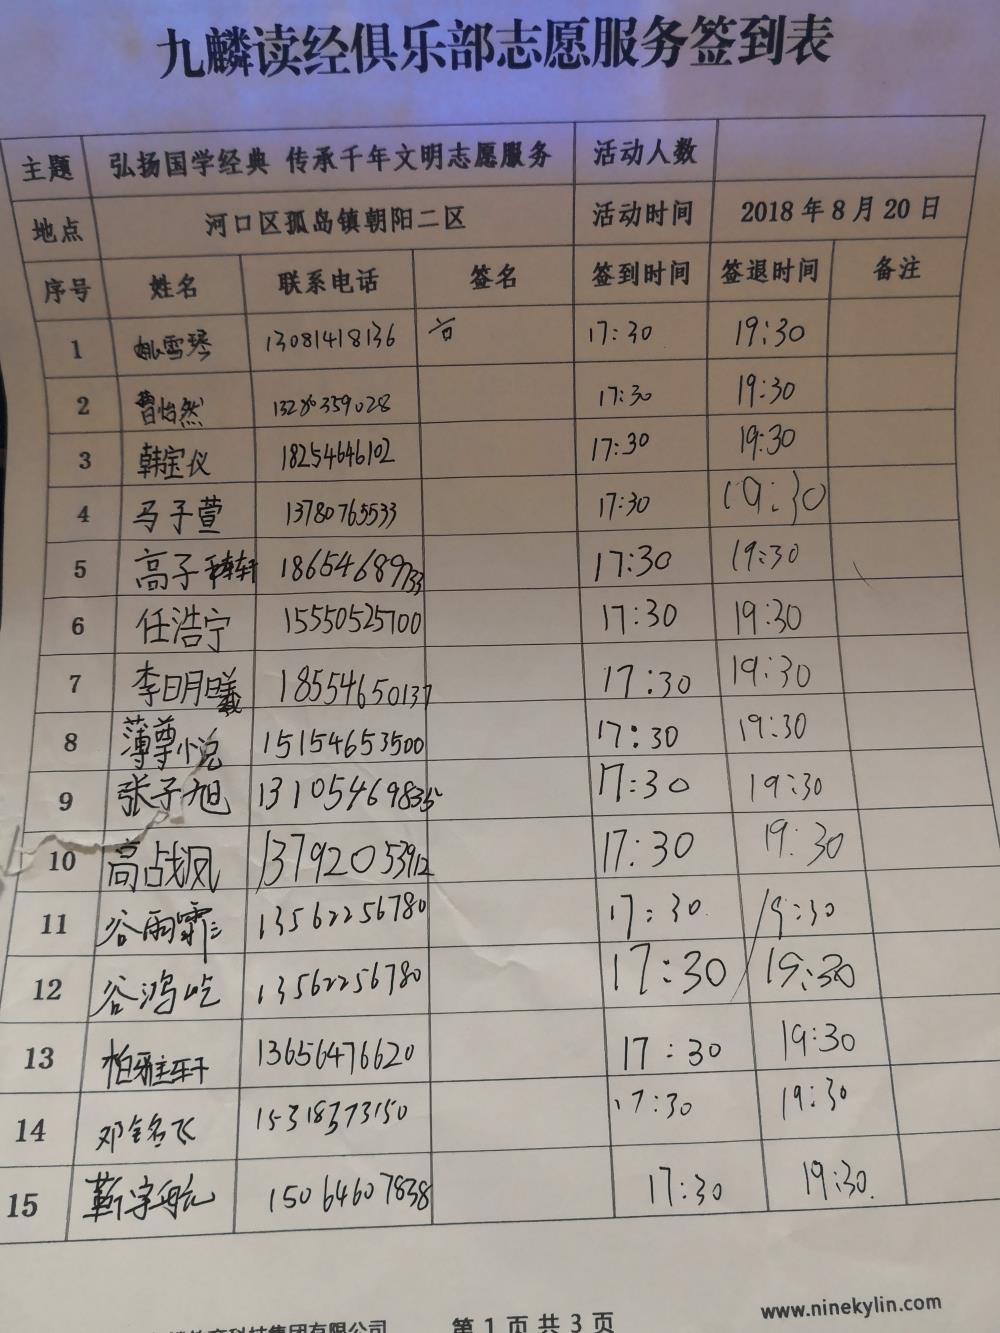 九麟读经俱乐部志愿服务签到表
主题 弘扬国学经典 传承千年文明志愿服务 活动人数
地点 河口区孤岛镇朝阳二区 活动时间 2018年8月20日
序号 姓名 联系电话 签名 签到时间 签退时间 备注
1 姚雪琴 13081418136 17:30 19:30
2 曹怡然 13280359028 17:30 19:30
3 韩宝仪 18254646102 17:30 19:30
4 马子萱 13780765533 17:30 19:30
5 高子轩 18654689733 17:30 19:30
6 任浩宁 15550525700 17:30 19:30
7 李明曦 18554650137 17:30 19:30
8 薄尊悦 15154653500 17:30 19:30
9 张子旭 13105469835 17:30 19:30
10 高占凤 13792053912 17:30 19:30
11 谷雨霏 13562256780 17:30 19:30
12 谷鸿屹 13562256780 17:30 19:30
13 柏雅轩 13656476620 17:30 19:30
14 邓铭飞 15318373150 17:30 19:30
15 靳宇航 15064607838 17:30 19:30
科技集团有限公司 第1页共3页 www.ninekylin.com